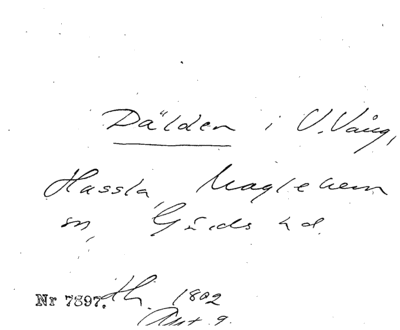 Dälden i V. Vång,
Hassla, Maglehem
sn, Gärds hd.
Nr 7897. Hh. 1802
Akt 9.